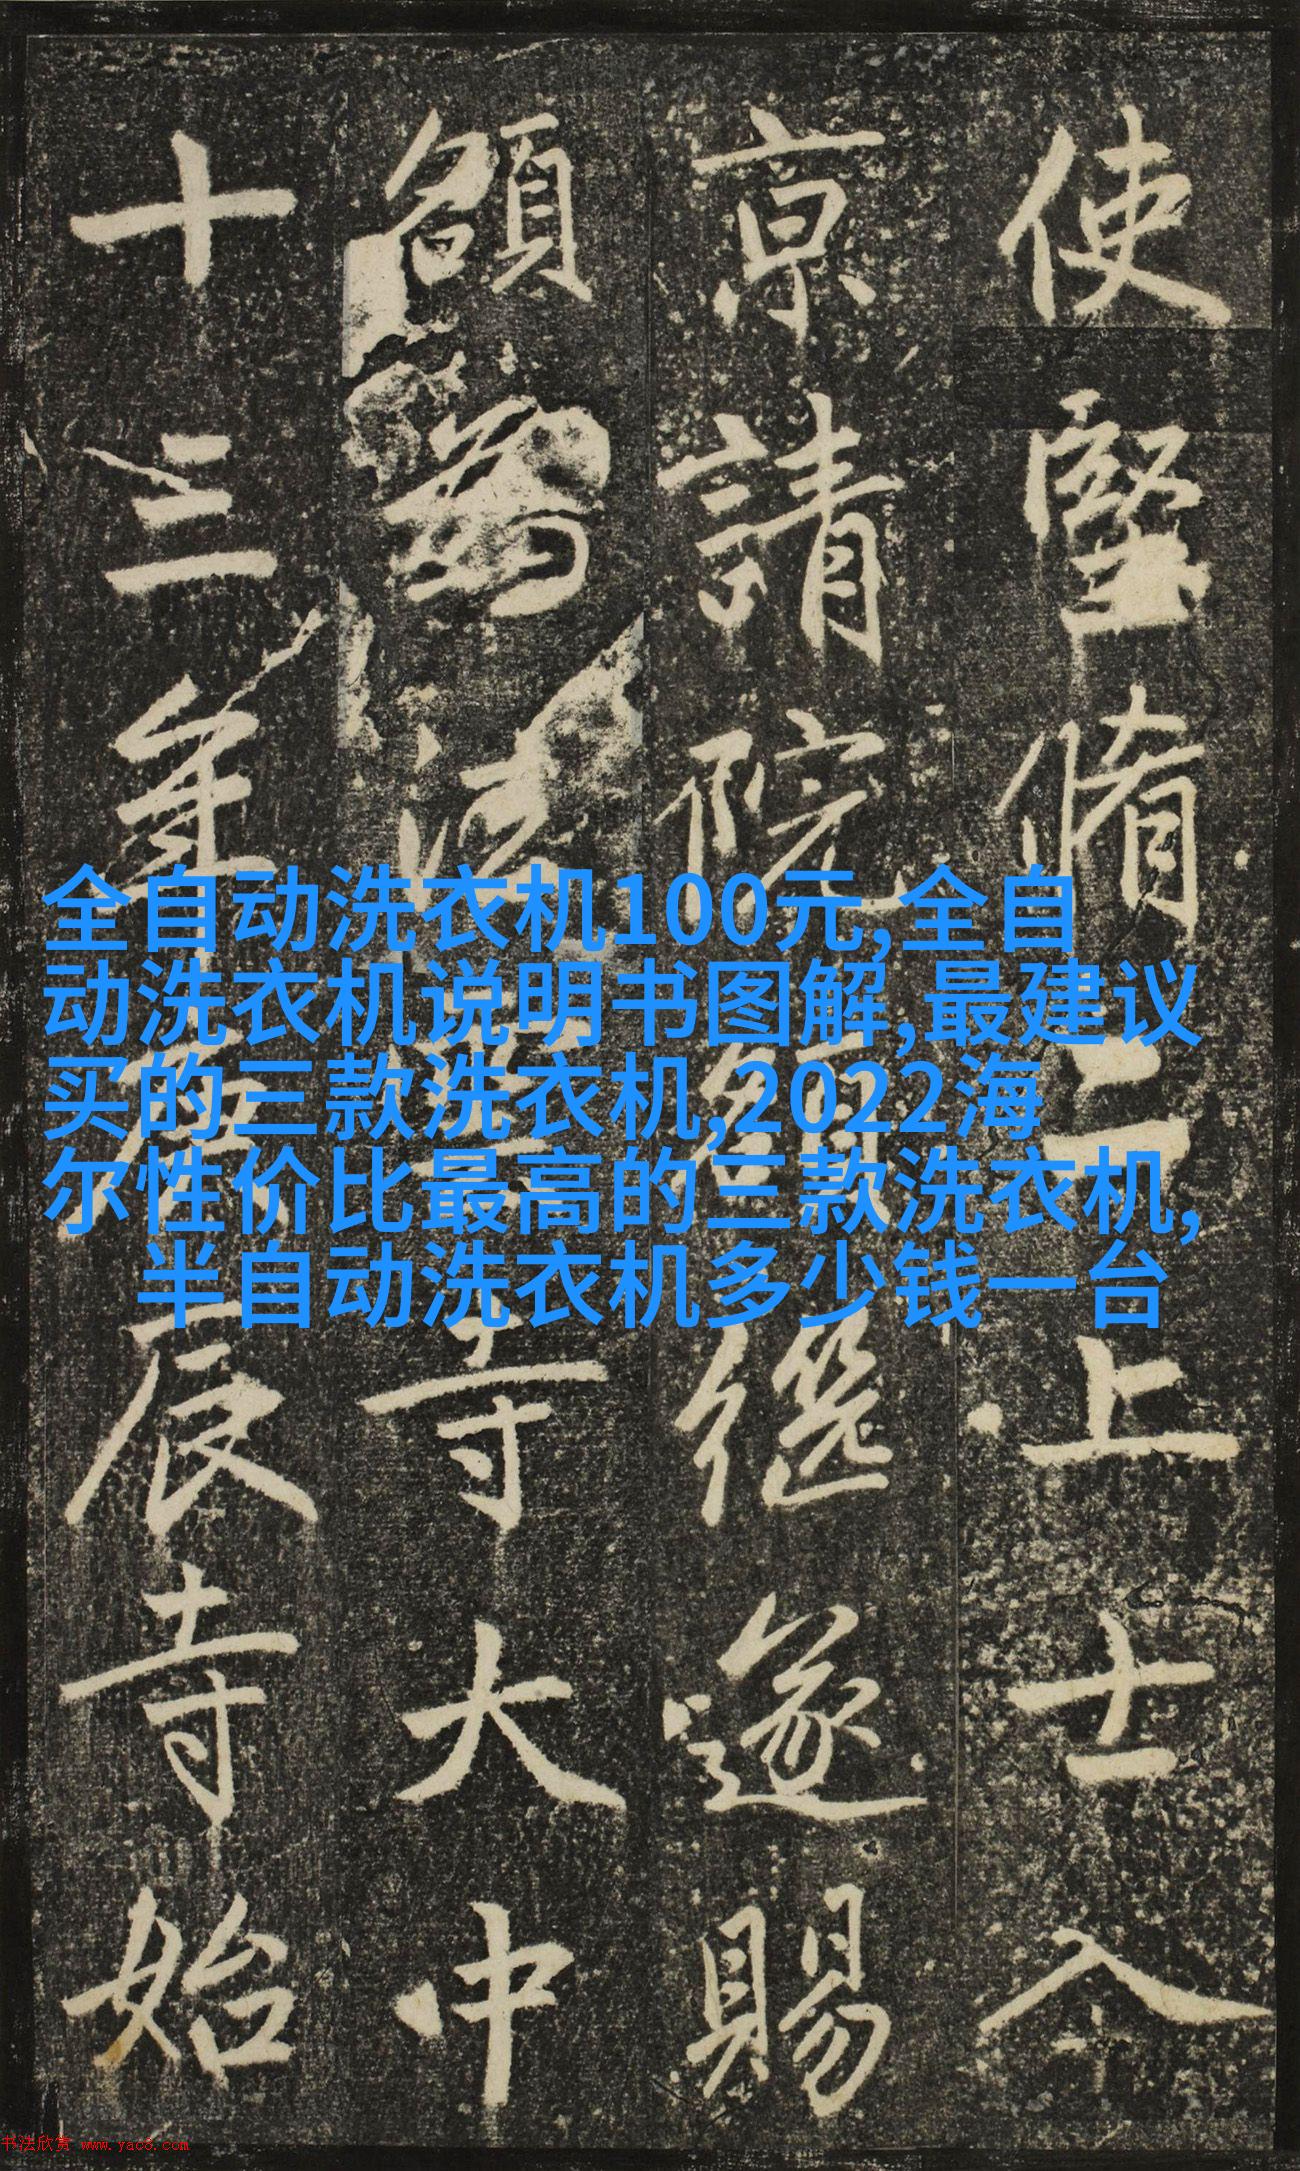 使堅脩二上士入
京請院額繼遂賜
額為法寺大中
十三年庚辰寺始
全自动洗衣机100元,全自
动洗衣机说明书图解,最建议
买的三款洗衣机,2022海
尔性价比最高的三款洗衣机,
半自动洗衣机多少钱一台
书法欣赏 www.yac8.com